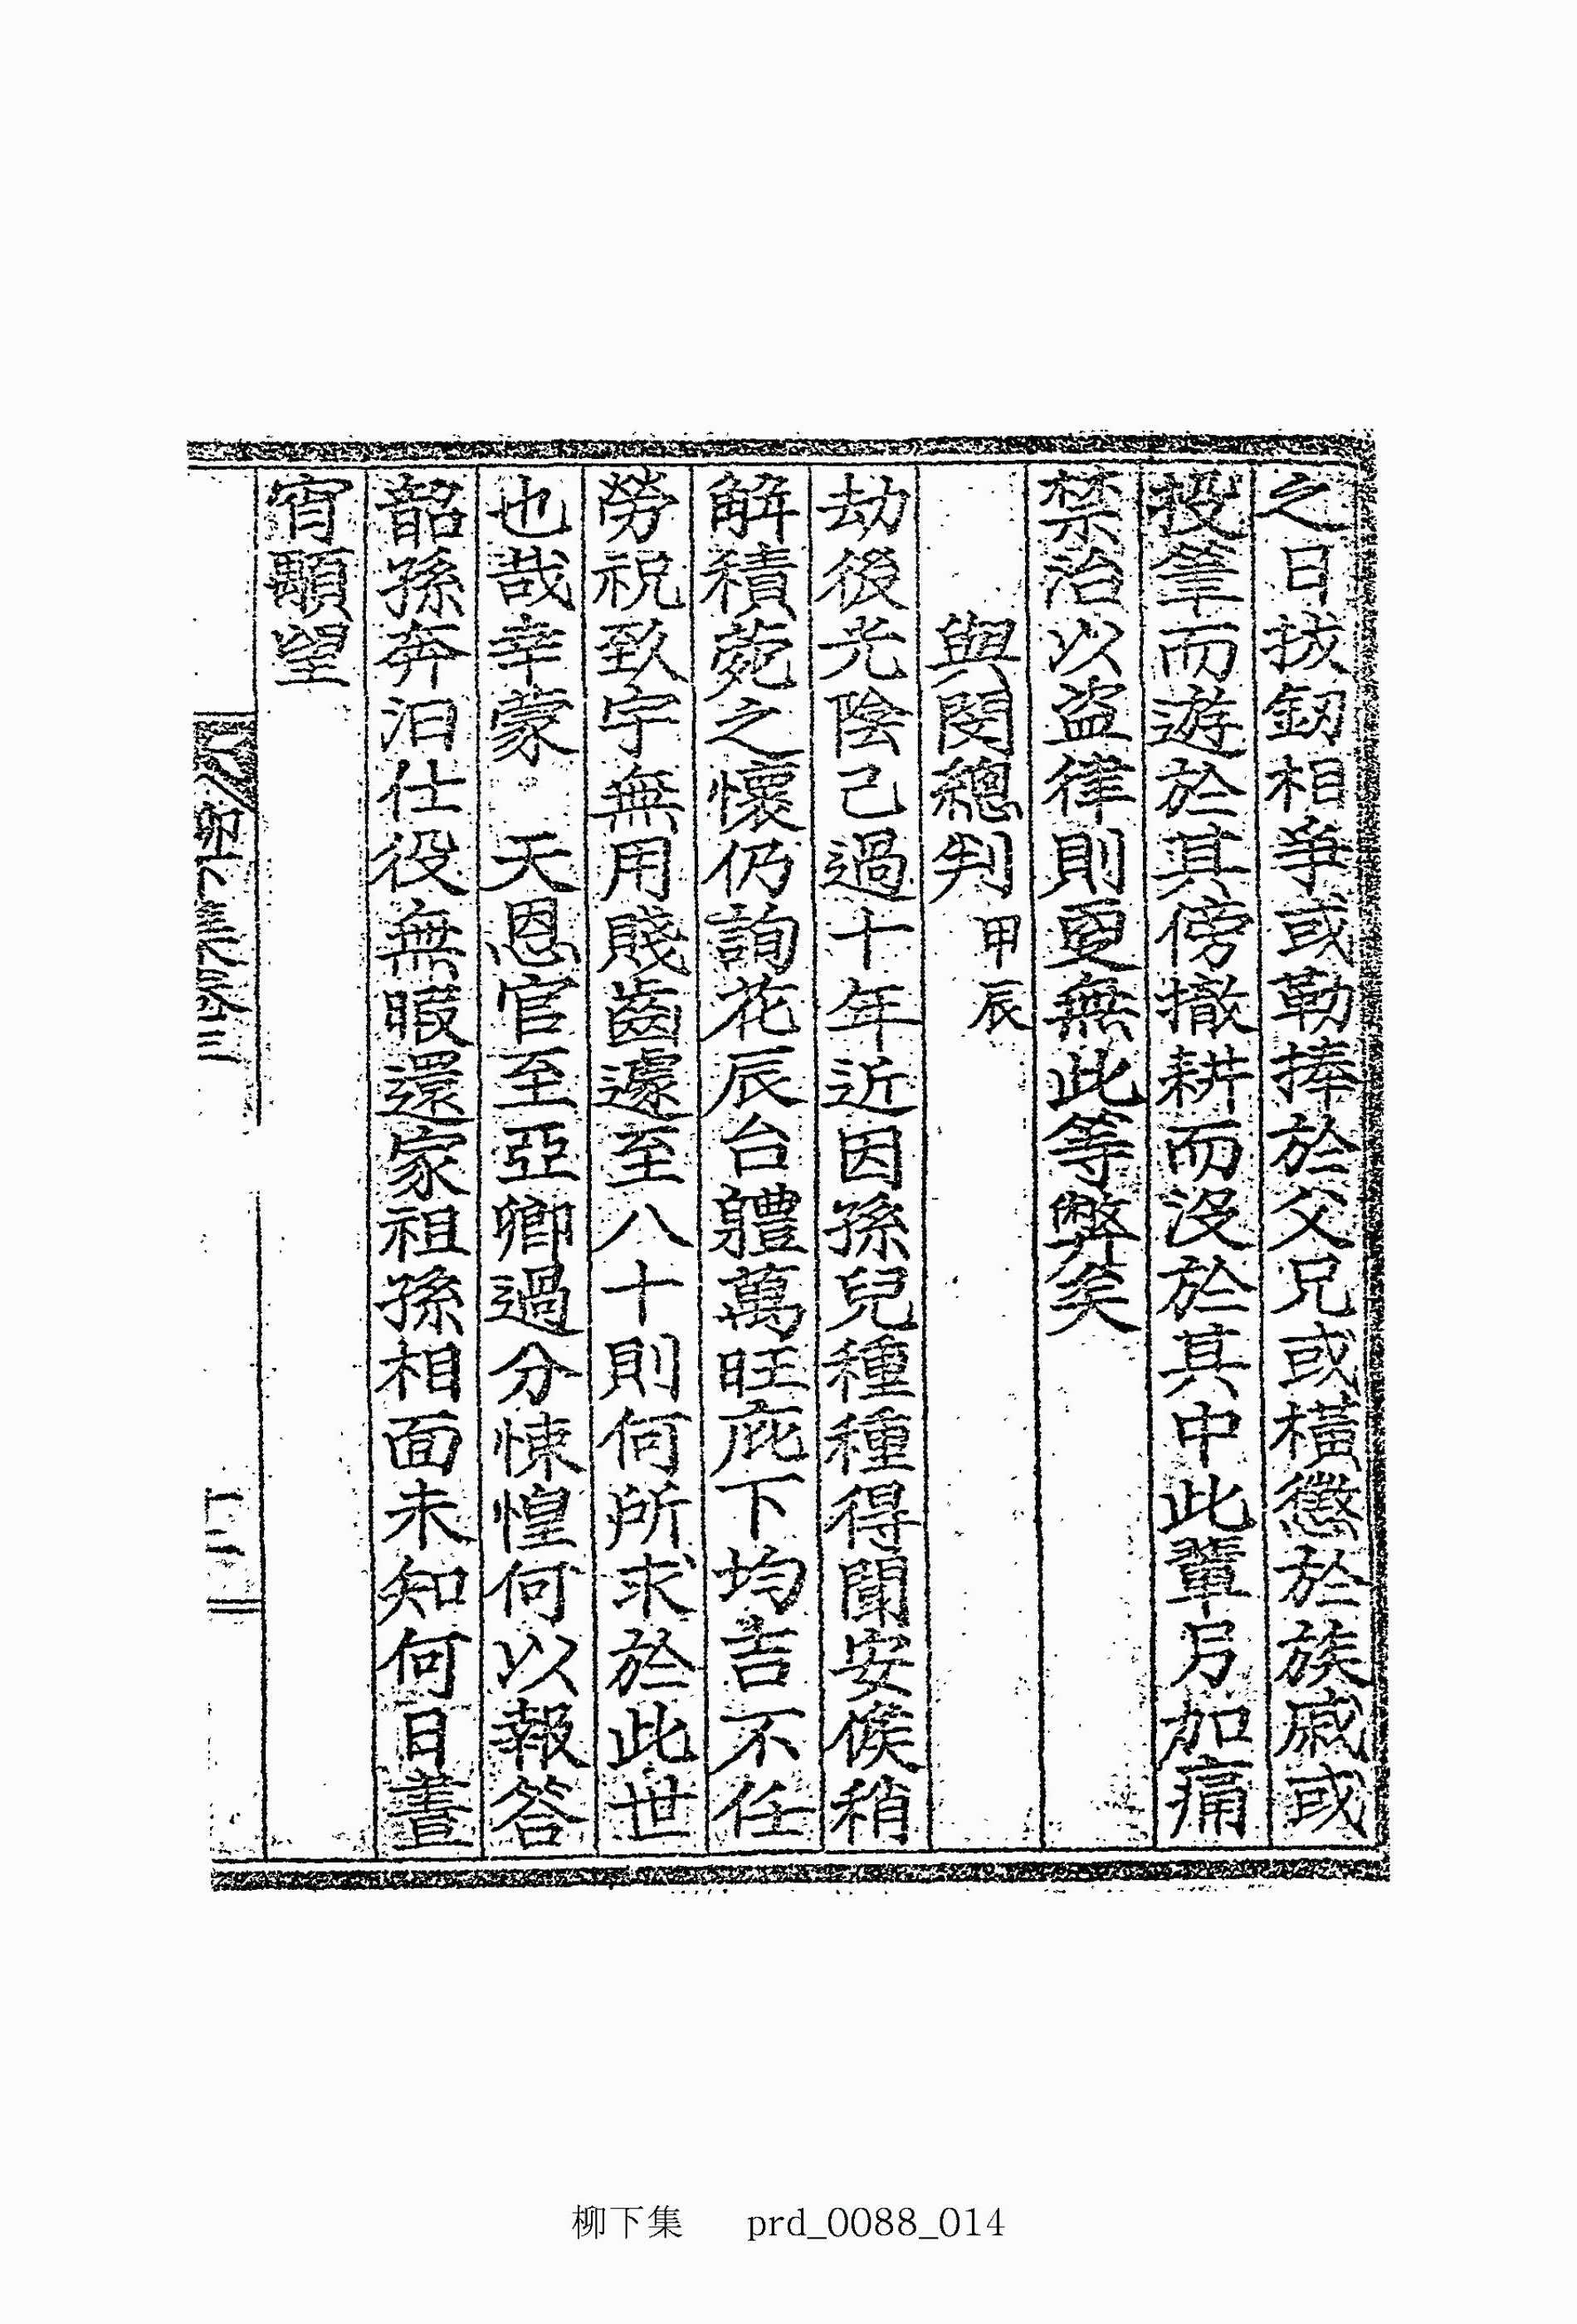 之日拔釼相爭或勒捧於父兄或橫懲於族戚或
投筆而遊於其傍撤耕而沒於其中此輩另加痛
禁治以盜律則更無此等弊矣
與閔總判 甲辰
劫後光陰已過十年近因孫兒種種得聞安候稍
解積菀之懷仍詢花辰台軆萬旺庇下均吉不任
勞祝致宇無用賤齒遽至八十則何所求於此世
也哉幸蒙 天恩官至亞卿過分悚惶何以報答
韶孫奔汩仕役無暇還家祖孫相面未知何日晝
宵顒望
柳下集卷三
十二
柳下集 prd_0088_014